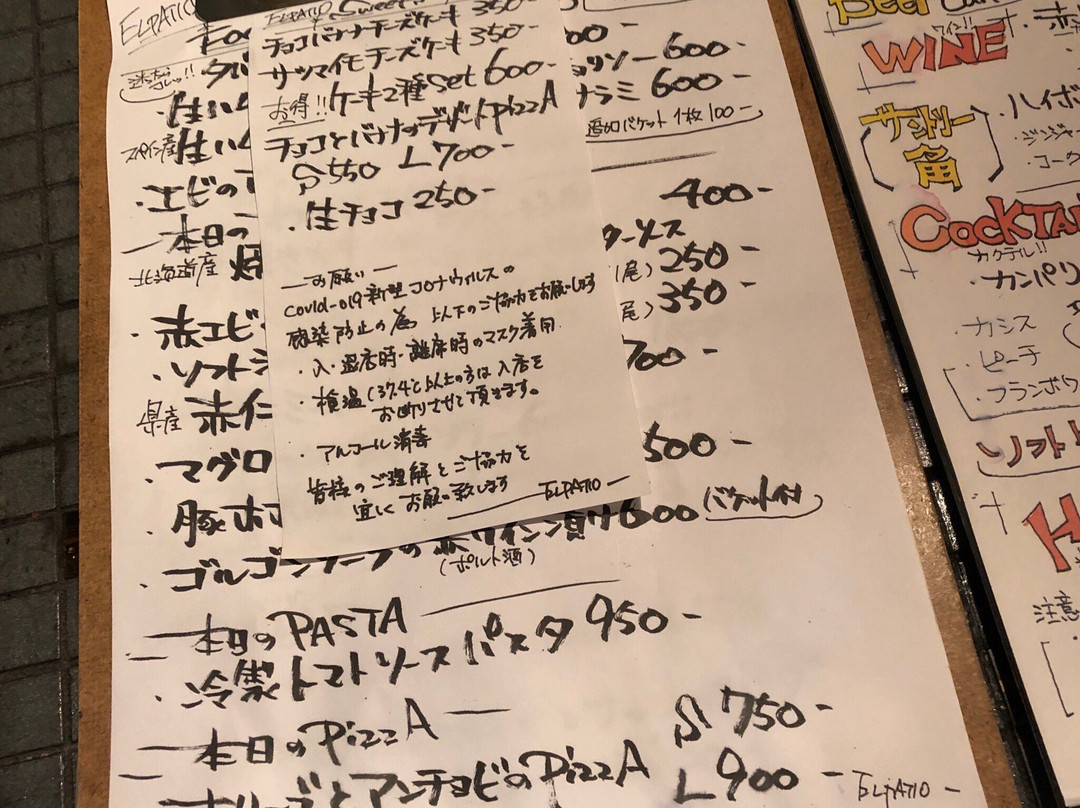 ELPATIO
スペイン産 生ハ
・エビの
本日の
北海道産
・赤エビ
・ソフトシ
県産 赤仁
・マグロ
・豚ホ
・ゴルゴンゾーラの赤ワイン漬け600 バケット付
(ポルト酒)
本日のPASTA
・冷製トマトソースパスタ 950-
本日のPizzA S 750-
とアンチョビのPizzA L 900-
ELPATIO
ELPATIO Sweets
チョコバナナチーズケーキ 350-
サツマイモチーズケーキ 350-
お得!!ケーキ2種set 600-
チョコとバナナのデザートPizzA
S 550 L 700-
・生チョコ 250-
お願い
covid-019新型コロナウィルスの
感染防止の為 以下のご協力をお願いします
・入・退店時・離席時のマスク着用
・検温(37.4℃以上の方は入店を
お断りさせて頂きます。
・アルコール消毒
皆様のご理解とご協力を
宜しくお願い致します
ELPATIO
リソー 600-
ナラミ 600
追加バケット 1枚 100-
400-
ターソース
(尾) 250-
尾) 350-
700-
500-
Beer
WINE
ワイン!!
サントリー
角
ハイボ
・ジンジャ
・コーク
COCKTA
カクテル!!
・カンパリ
・カシス
・ピーチ
・フランボワ
ソフト
H
注意